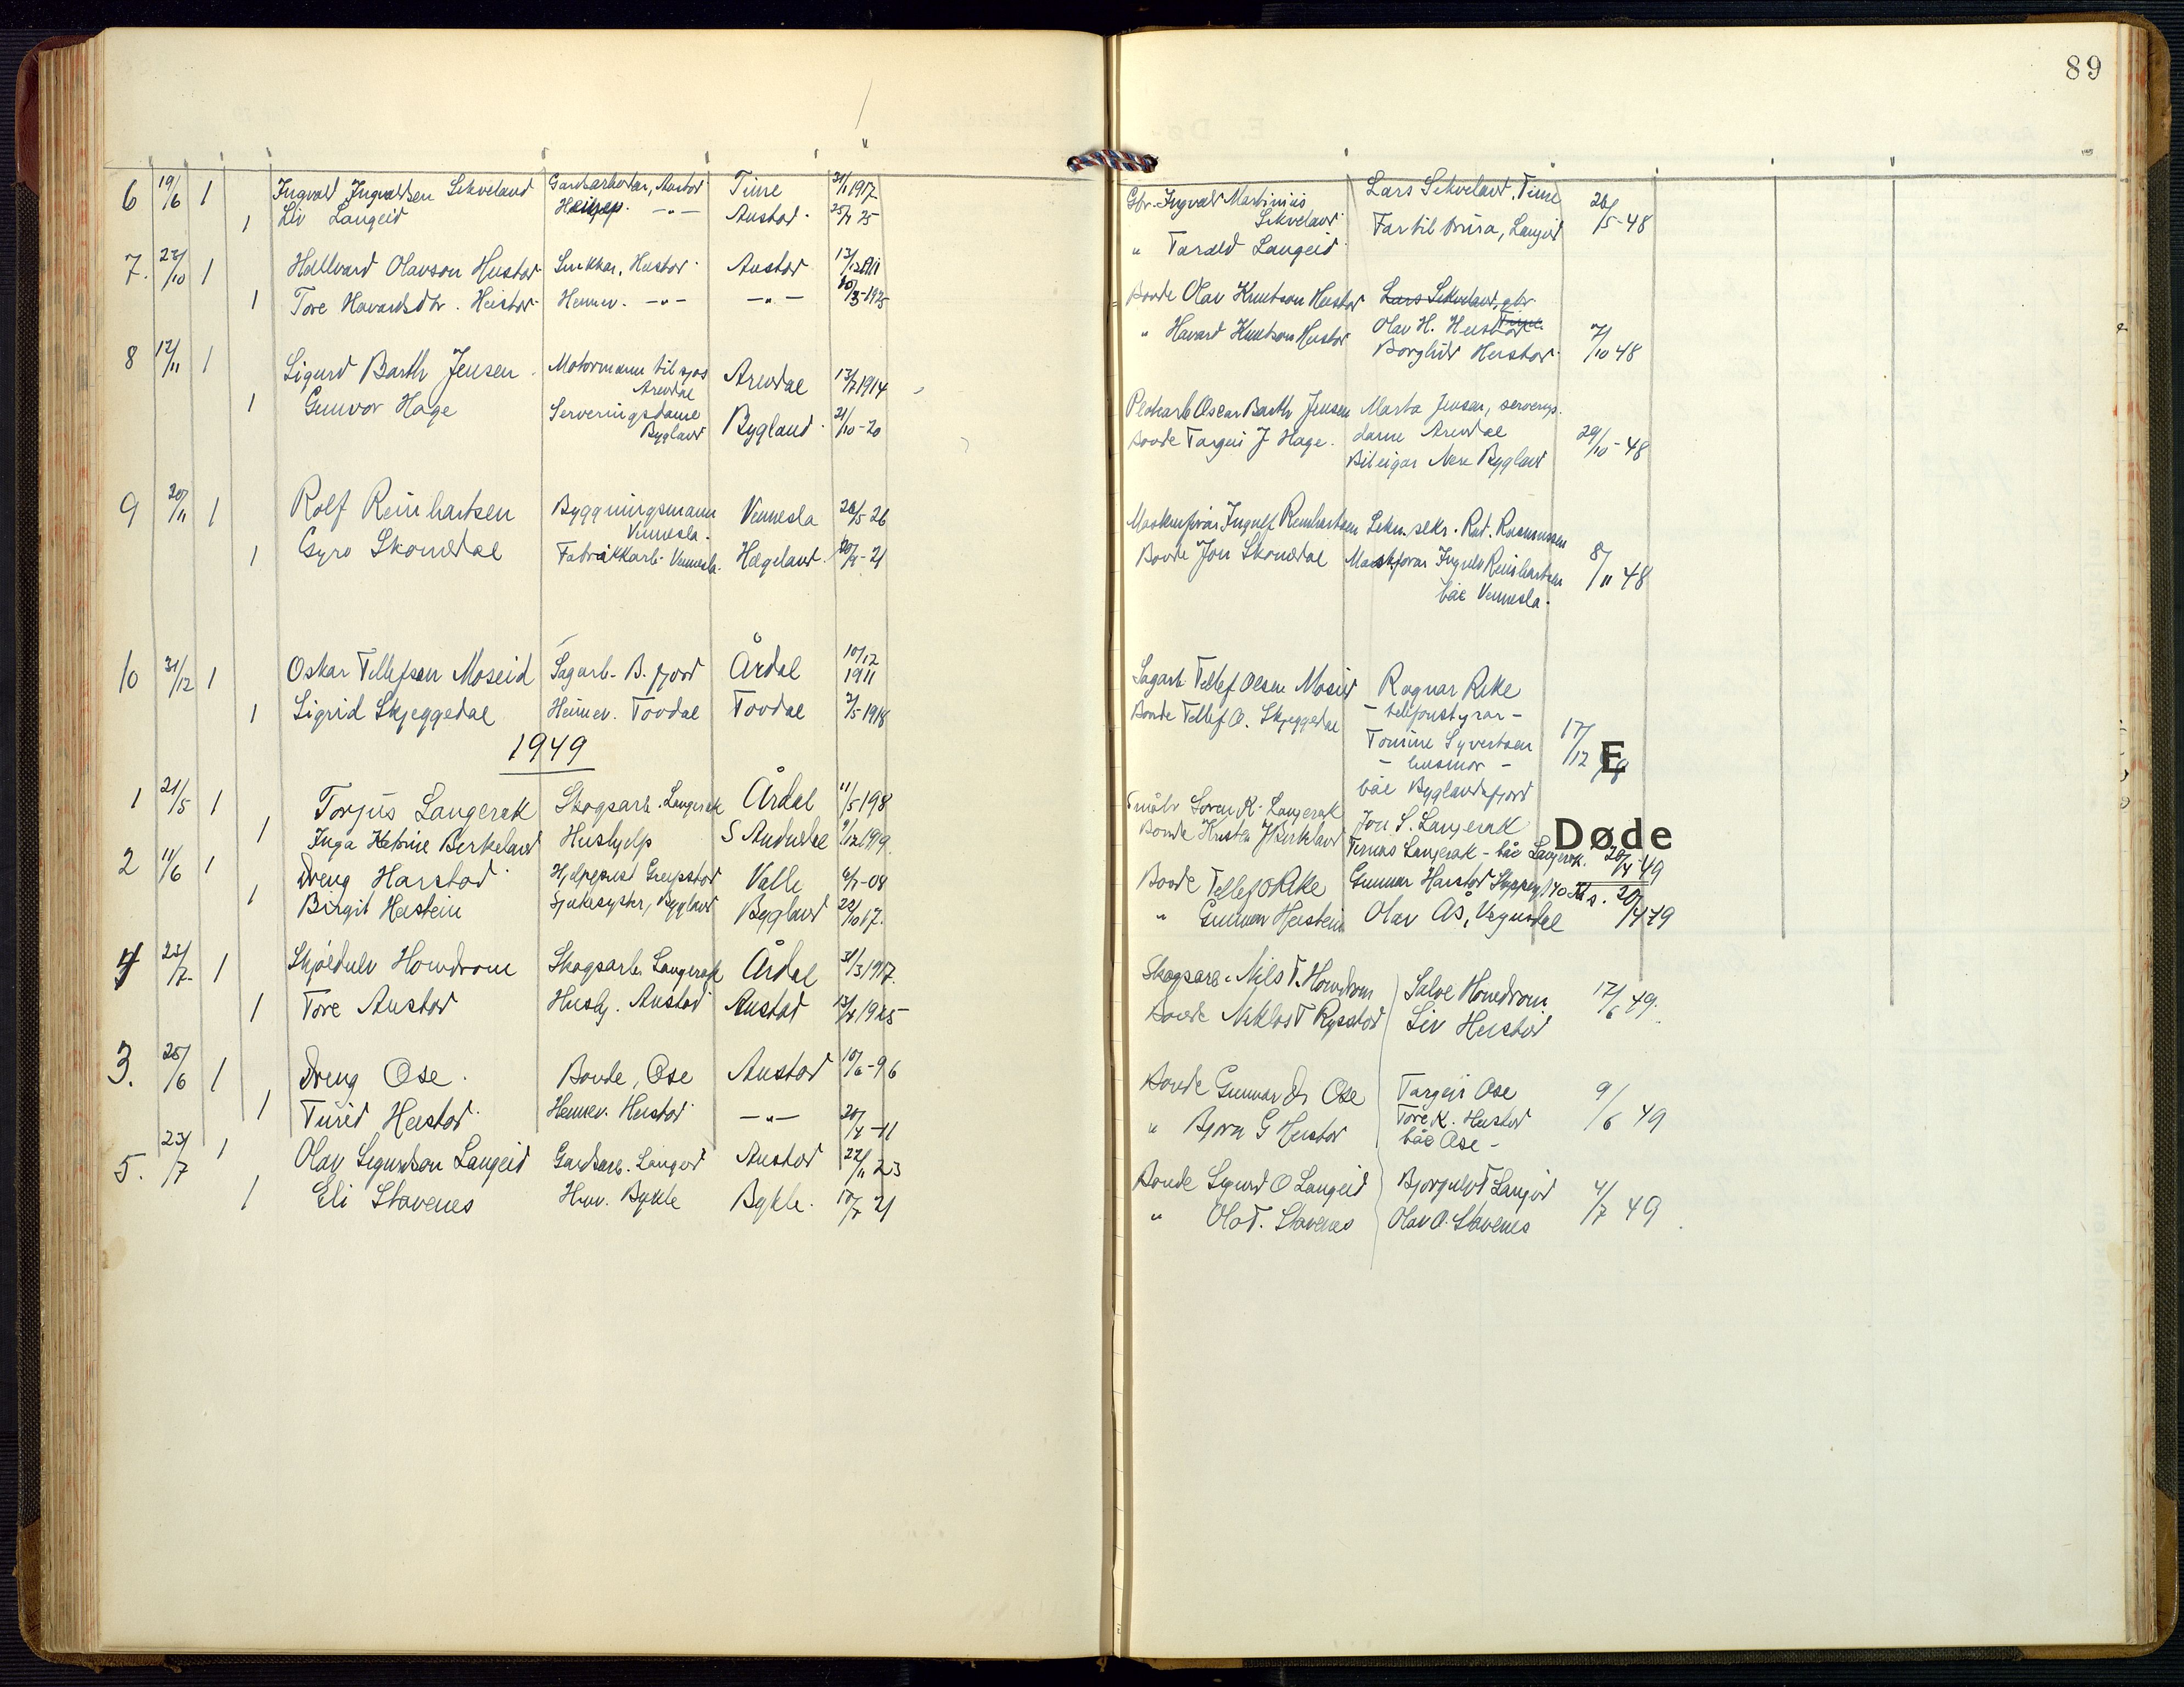 89
6 19/6 1 Ingvald Ingvaldsen Sikveland Gardsarbeidar, Austad Time 1917
1 Liv Langeid Hushjelp. -"- Austad. 25
Gbr. Ingvald Martinius Lars Sikveland, Time
Sikveland Far til brura, Langeid 26/5-48
" Tarald Langeid
7. 22/10 1 Hallvard Olavson Heistad Snikkar, Heistad Austad
1 Tore Havardsdtr. Heistad Heimev. -"- -"- 1925
Bonde Olav Knutson Heistad Lars Sikveland, gbr.
Time
" Havard Knutson Heistad Olav H. Heistad
Borghild Heistad 7/10 48
8 12/11 1 Sigurd Barth Jensen Motormann til sjøs Arendal 13/7 1914
Arendal
1 Gunvor Hage Serveringsdame Bygland 21/10-20
Bygland
Oscar Barth Jensen Marta Jensen, serverings-
Bonde Targei J Hage. dame Arendal 29/10-48
Bileigar Bygland
9 20/11 1 Rolf Reinhartsen Byggningsmann Vennesla 26/5 26
Vennesla.
1 Gyro Skomedal Fabrikkarb. Vennesla. Hægeland. 21
Ingulf Reinhartsen Rasmussen
Bonde Jon Skomedal Ingulf Reinhartsen 8/11 48
båe Vennesla.
10 31/12 1 Oskar Tellefsen Moseid Sagarb. B. fjord Årdal 10/12
1911
1 Sigrid Skjeggedal Heimev. Tovdal Tovdal 2/5 1918
Sagarb. Tellef Olsen Moseid Ragnar Rike
Bonde Tellef O. Skjeggedal - telefonstyrar -
Tomine Syvertsen 17/12
- husmor -
båe Byglandsfjord
E
1949
1 21/5 1 Torjus Langerak Skogsarb. Langerak Årdal 11/5-198
1 Inga Katrine Berkeland Hushjelp S Audnedal 9/12 1919.
Småbr Søren K. Langerak Jon S. Langerak
Bonde Kristen J Berkeland Langerak - båe Langerak. 20/4-49
Døde
2 11/6 1 Dreng Harstad Hjelpeprest Greipstad Valle 08
1 Birgit Heistein Sjukesyster, Bygland Bygland 17.
Bonde Tellef O Rike Gunnar Harstad
" Gunnar Heistein Olav Ås, 20/4 49
4 23/7. 1 Skjoldulv Homdrom Skogsarb. Langerak Årdal 31/3 1917.
1 Tore Austad Hushj. Austad Austad 1925
Skogsarb. Nils T. Homdrom Salve Homdrom 17/6 49.
Bonde Niklos T Rysstad Liv Heistad
3. 25/6 1 Dreng Ose. Bonde, Ose Austad 10/6-96
1 Turid Heistad Heimev. Heistad -"- 20/4-11
Bonde Gunnar D. Ose Targei Ose 9/6 49
" Bjorn G Heistad Tore K. Heistad
båe Ose -
5. 23/7 1 Olav Sigurdson Langeid Gardsarb. Langeid Austad 22/11 23
1 Eli Stavenes Hmv. Bykle Bykle. 10/7 21
Bonde Sigurd O Langeid Bjorgulv T Langeid 4/7 49
" Ola T. Stavenes Olav O. Stavenes